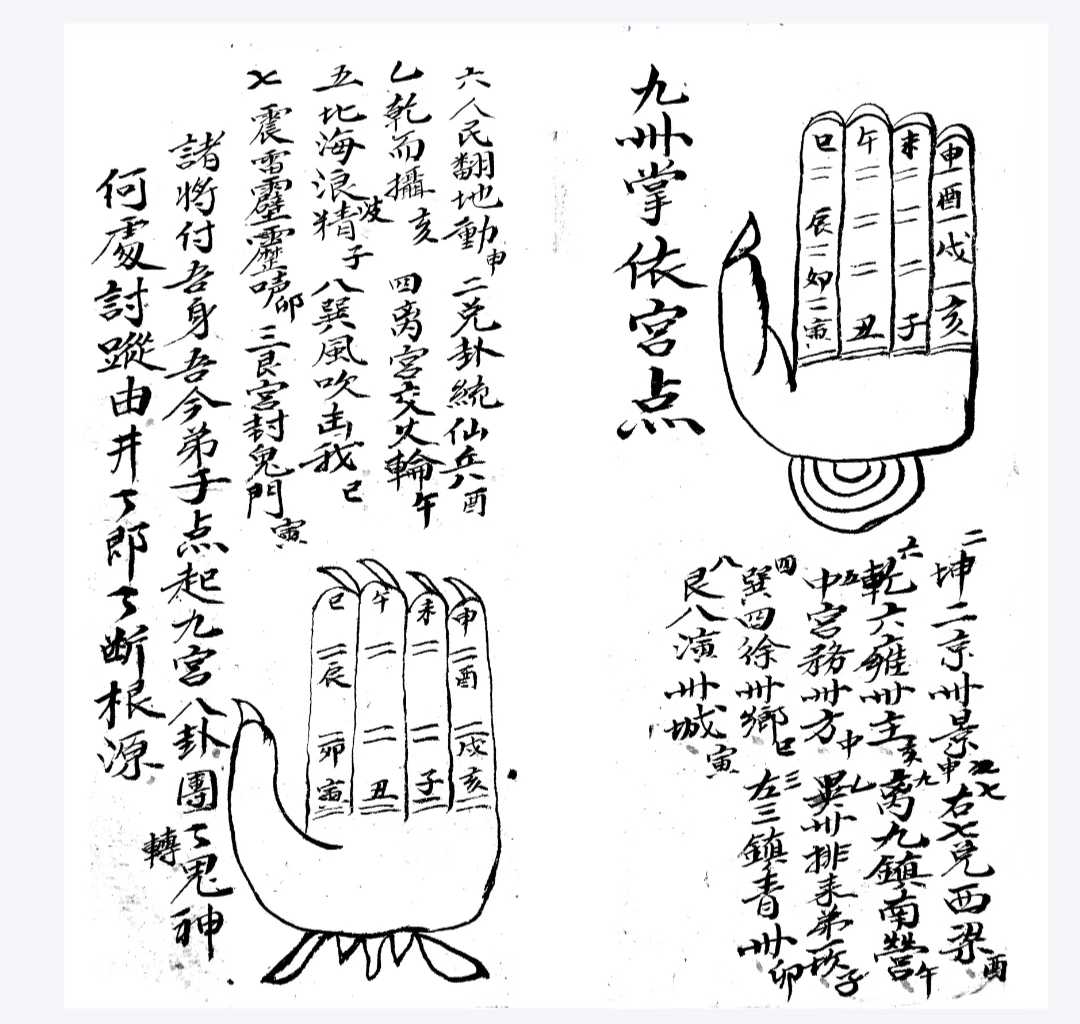 九卅掌依宮点
申酉戌亥
未子
午丑
巳辰卯寅
二坤二京卅景申 七右七兌西梁酉
六乾六雍卅主亥 九离九鎮南營午
五中宮務卅方中 乙卅排来弟一坎子
四巽四徐卅鄉巳 三左三鎮青卅卯
八艮八演卅城寅
六人民翻地動申 二兌卦統仙兵酉
乙乾而攝亥 四离宮交丈輪午
五北海浪波精子 八巽風吹击我巳
七震雷霹靂卯 三艮宮封鬼門寅
諸將付吾身吾今弟子点起九宮八卦團〻轉鬼神
何處討蹤由井〻郎〻断根源
申酉戌亥
未子
午丑
巳辰卯寅